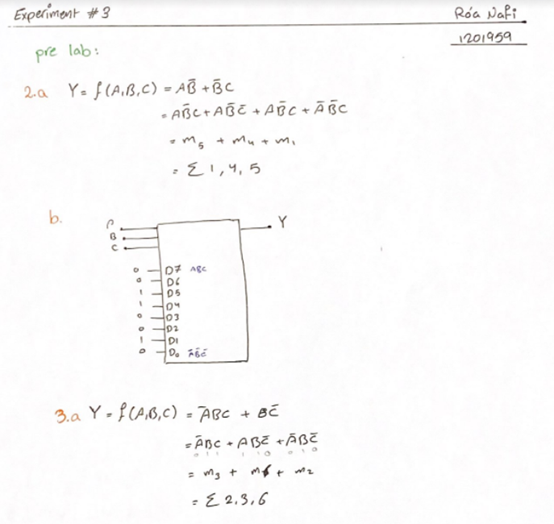 Experiment #3
Róa Nafi
1201959
pre lab:
2.a Y = f(A,B,C) = AB̄ + B̄C
= AB̄C + AB̄C̄ + AB̄C + ĀB̄C
= m₅ + m₄ + m₁
= Σ 1,4,5
b.
A
B
C
Y
0 D7 ABC
0 D6
1 D5
1 D4
0 D3
0 D2
1 D1
0 D₀ ĀB̄C̄
3.a Y = f(A,B,C) = ĀBC + BC̄
= ĀBC + ABC̄ + ĀBC̄
0 1 1 1 1 0 0 1 0
= m₃ + m6 + m₂
= Σ 2,3,6